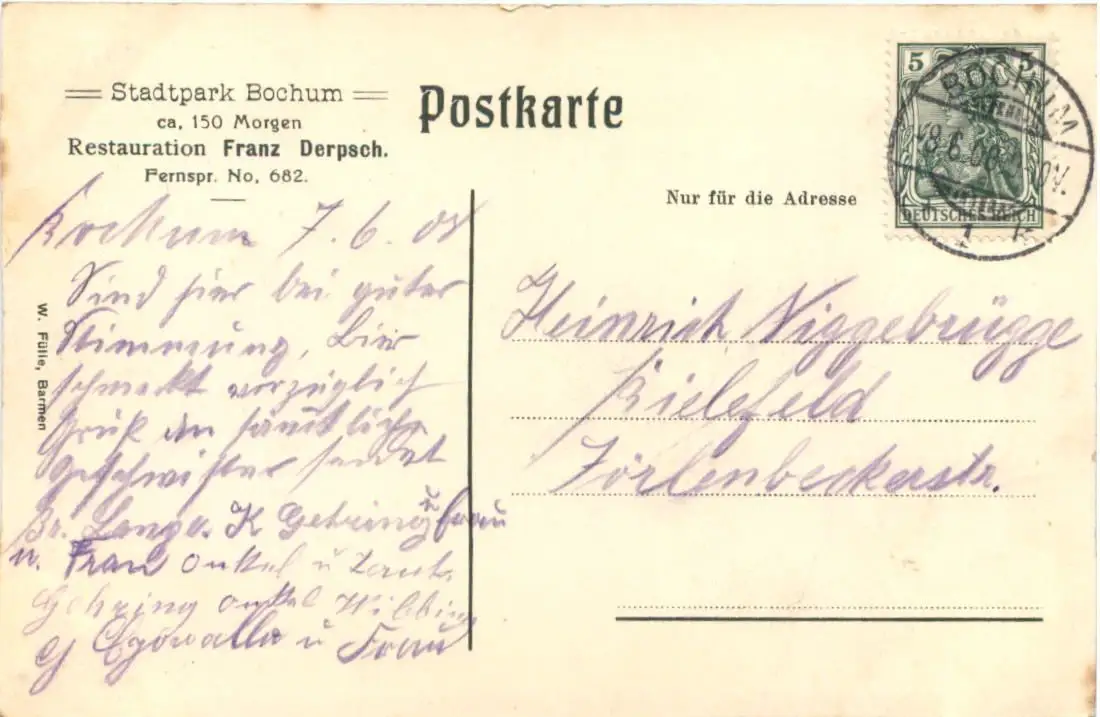 Stadtpark Bochum
ca. 150 Morgen
Restauration Franz Derpsch.
Fernspr. No. 682.
Postkarte
Nur für die Adresse
5 5
DEUTSCHES REICH
BOCHUM
W. Fülle, Barmen
Bochum 7.6.08
Sind hier bei guter
Stimmung, Bier
schmeckt vorzüglich
Gruß an sämtliche
Geschwister sendet
Br. Lange. K Gehring u Frau
u. Frau Onkel u Tante
Gehring Onkel
u Frau
Heinrich Niggebrügge
Bielefeld
Jöllenbeckerstr.